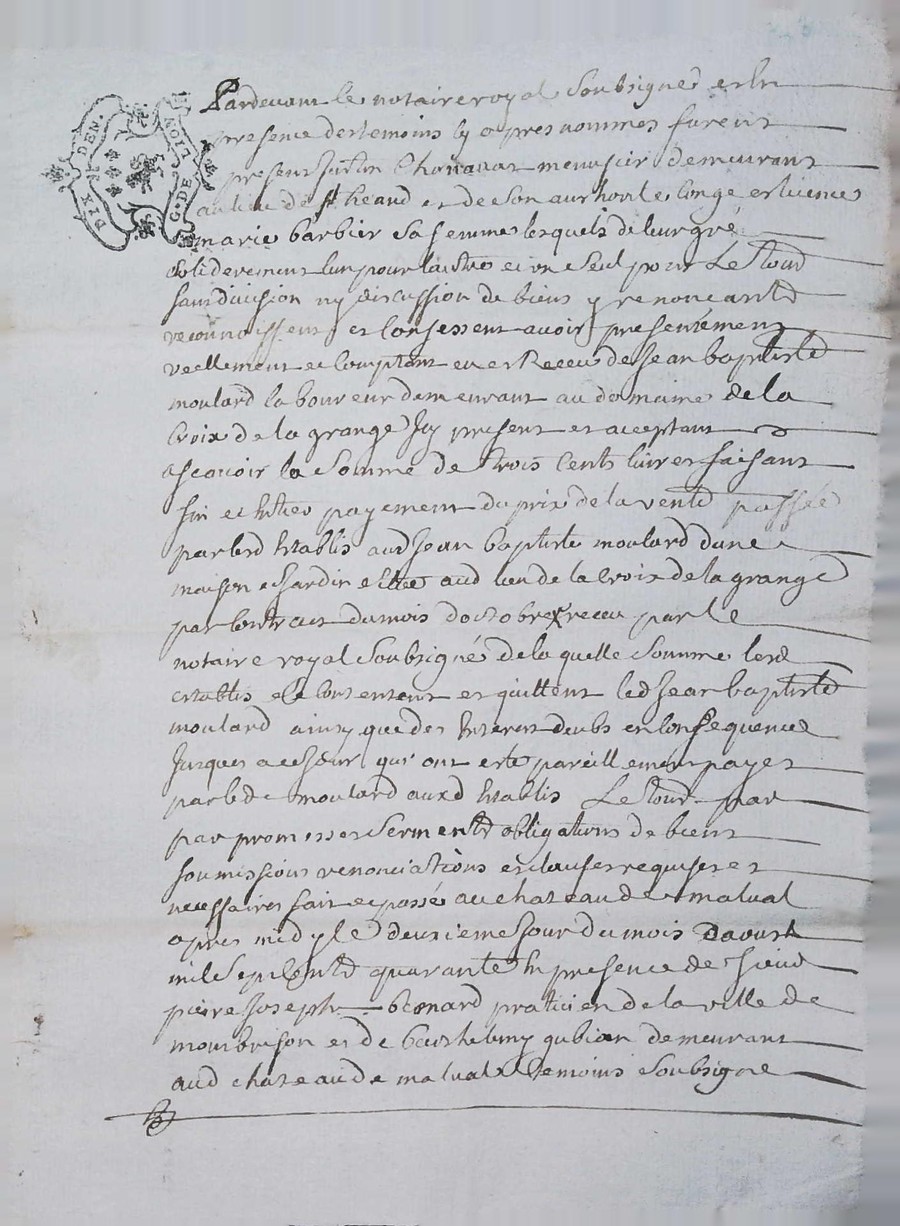 DIX DEN.
G. DE LION
Pardevant le notaire royal soubsigné et en
presence des temoins cy apres nommés furent
present menusier demeurant
au lieu de et de son authorité conge et licence
marie barbier sa femme lesquels de leur gré
soliderement lun pour lautre et un seul pour le tout
sans division ny discussion de biens y renoncants
reconnoissent et confessent avoir presentement
reellement et comptant eu et Receu de jean baptiste
moulard laboureur demeurant au domaine de la
Croix de la grange Icy present et acceptant
ascavoir la somme de trois cents livres faisant
fin et Entier payement du prix de la vente passée
par lesd Etablis aud jean baptiste moulard dune
maison et jardin aud lieu de la Croix de la grange
par contract du mois doctobre receu par le
notaire royal soubsigné de la quelle somme lesd
establis se contentent et quittent led jean baptiste
moulard ainsy que des Interest deubs en consequence
jusques a ce jour qui ont esté pareillement payes
par led moulard auxd Etablis Le tout par
par promesses serment obligations de biens
soumissions renonciations et clauses requises et
necessaires fait et passé au chateau de malval
apres midy le deuxieme jour du mois Daoust
mil sept cents quarante En presence de sieur
pierre joseph bernard praticien de la ville de
montbrison et de barthelemy demeurant
aud chateau de malval temoins soubsigne